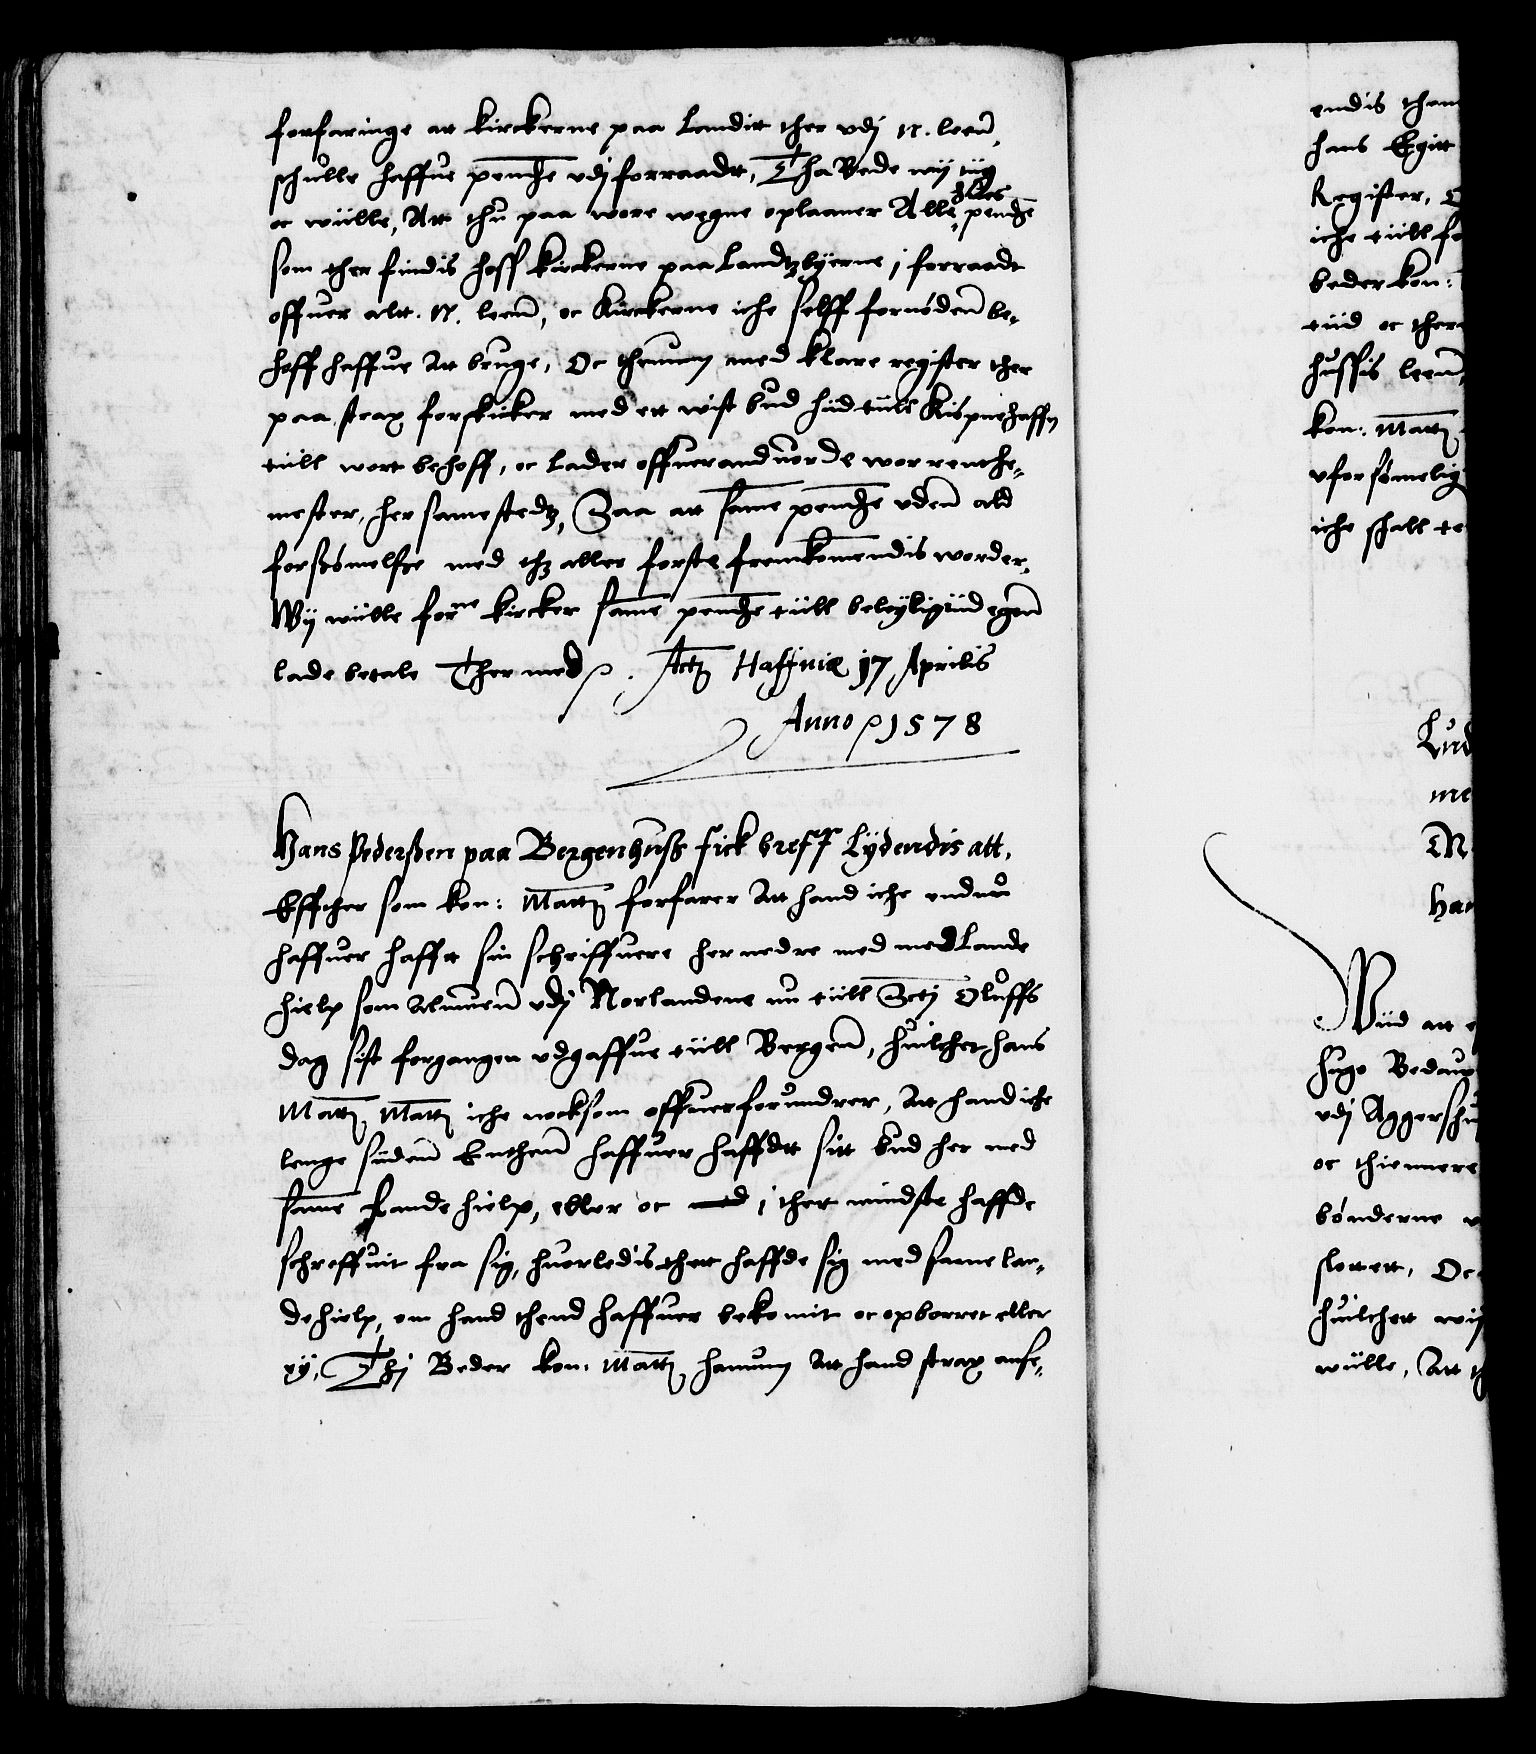 forfaringe att kirckerne paa Landitt ther vdj N. leen,
schulle haffue pendge vdj forraadt, Tha Bede wij tiig
oc wülle, Att thu paa wore wegne oplaaner Alle pendge
som ther findis hoss kirckerne paa Landtzbyerne j forraadt
offuer altt. N. leen, oc Kirckerne iche selff fornøden be-
hoff haffue Att bruge, Oc thennum med klare register ther
paa strax forskicker med ett wist bud hiid tiill Kiøpnehaffn
tiill wort behoff, oc lader offuerandtuorde wor renthe-
mester, her samestedtz, Saa att same pendge vden ald
forsømelsse med thz aller første fremkommendis worder.
Wij wülle forne kircker same pendge tiill beleyligtiid egen
lade betale Ther med. Actum Haffniæ 17 Aprilis
Anno 1578
Hans Pederßen paa Bergenhuß fick breff Lydendis att,
Effther som kon: Matt: forfarer Att hand iche endnu
haffuer hafftt sin schriffuere her nedre med med Lande
hielp som Almuen vdj Norlandene nu tiill Sctj Oluffs
dag sist forgangen vdgaffue tiill Bergen, huilchet hans
Matt: Matt: iche nocksom offuerforundrer, Att hand iche
lenge siiden Enthen haffuer haffdtt sitt bud her med
same Lande hielp, eller oc i thet mindste haffde
schreffuit fra sig, huorledis thett haffde sig med same lan-
dehielp, om hand thend haffuer bekomit oc opborret eller
ey, Thj Beder kon: Matt: hannum Att hand strax anse-
endis tham
hans Egitt
Register,
iche tiill fo
beder kon:
tiid oc ther
hussis leen,
kon: Matt:
vforsømelig
iche schall
Lud
me
M
han
Wiid att
hugo Bedaup
vdj Aggershu
oc thiennere
bønderne
slottett, Oc
huilchett wij
wülle, Att